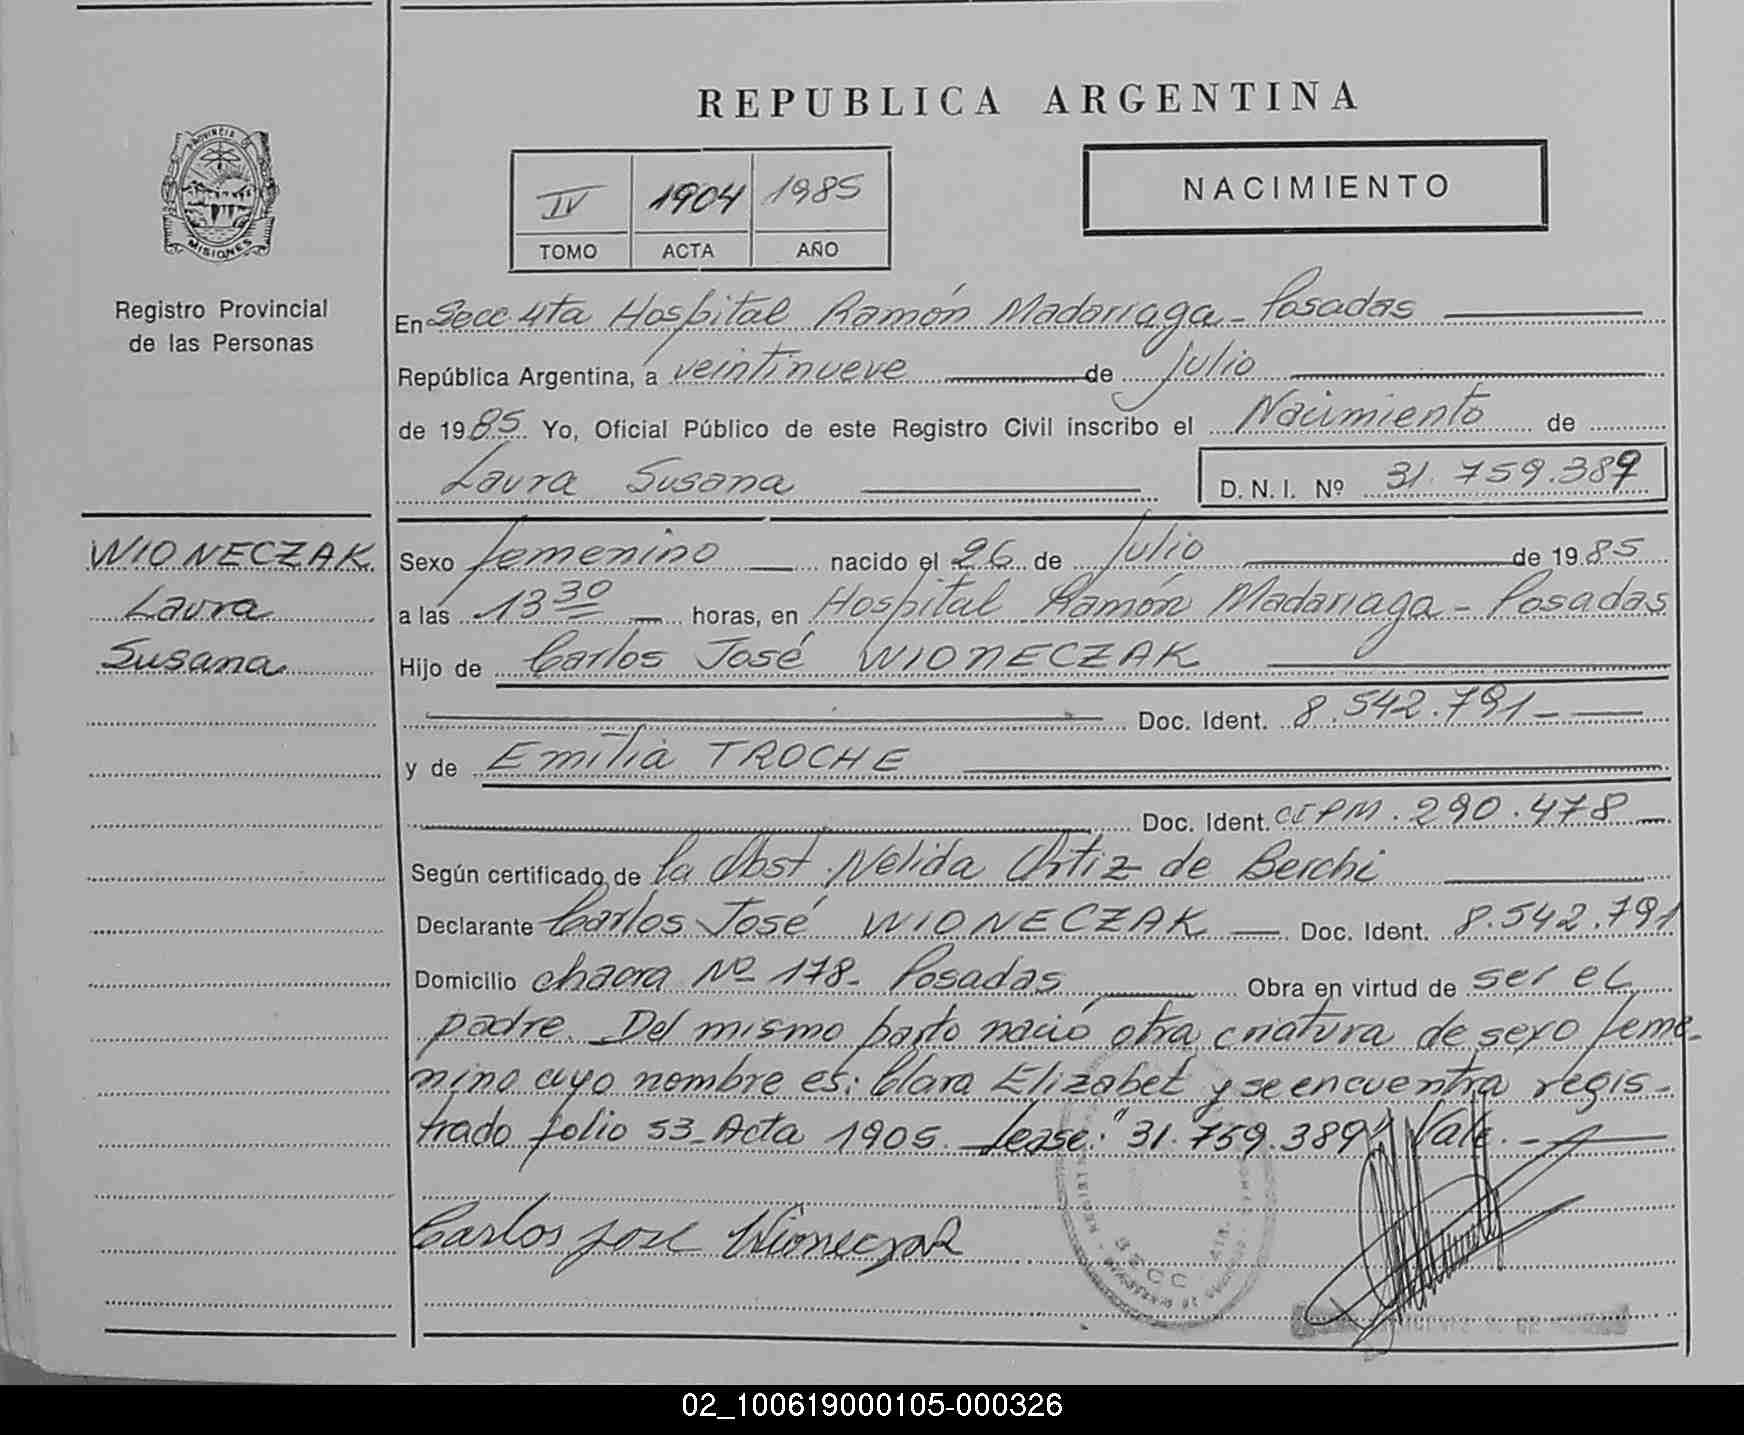 REPUBLICA ARGENTINA
PROVINCIA D
MISIONES
Registro Provincial
de las Personas
IV 1904 1985
TOMO ACTA AÑO
NACIMIENTO
En Secc 4ta Hospital Ramón Madariaga - Posadas
República Argentina, a veintinueve de Julio
de 1985 Yo, Oficial Público de este Registro Civil inscribo el Nacimiento de
Laura Susana D.N.I. Nº 31.759.389
WIONECZAK
Laura
Susana
Sexo femenino nacido el 26 de Julio de 1985
a las 13 30 horas, en Hospital Ramón Madariaga - Posadas
Hijo de Carlos José WIONECZAK
Doc. Ident. 8.542.791
y de Emilia TROCHE
Doc. Ident. CIPM. 290.478
Según certificado de la Obst Nelida Ortiz de Berchi
Declarante Carlos José WIONECZAK Doc. Ident. 8.542.791
Domicilio chacra Nº 178 - Posadas Obra en virtud de ser el
padre. Del mismo parto nació otra criatura de sexo feme-
nino cuyo nombre es: Clara Elizabet y se encuentra regis-
trado folio 53 - Acta 1905. Lease: "31.759.389" Vale. -
Carlos jose Wioneczak
SECC
02_100619000105-000326